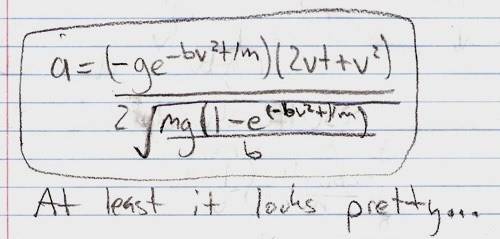 a = (-ge^{-bv²t/m})(2vt+v²)
2√(mg(1-e^{(-bv²t)/m})/b)
At least it looks pretty...